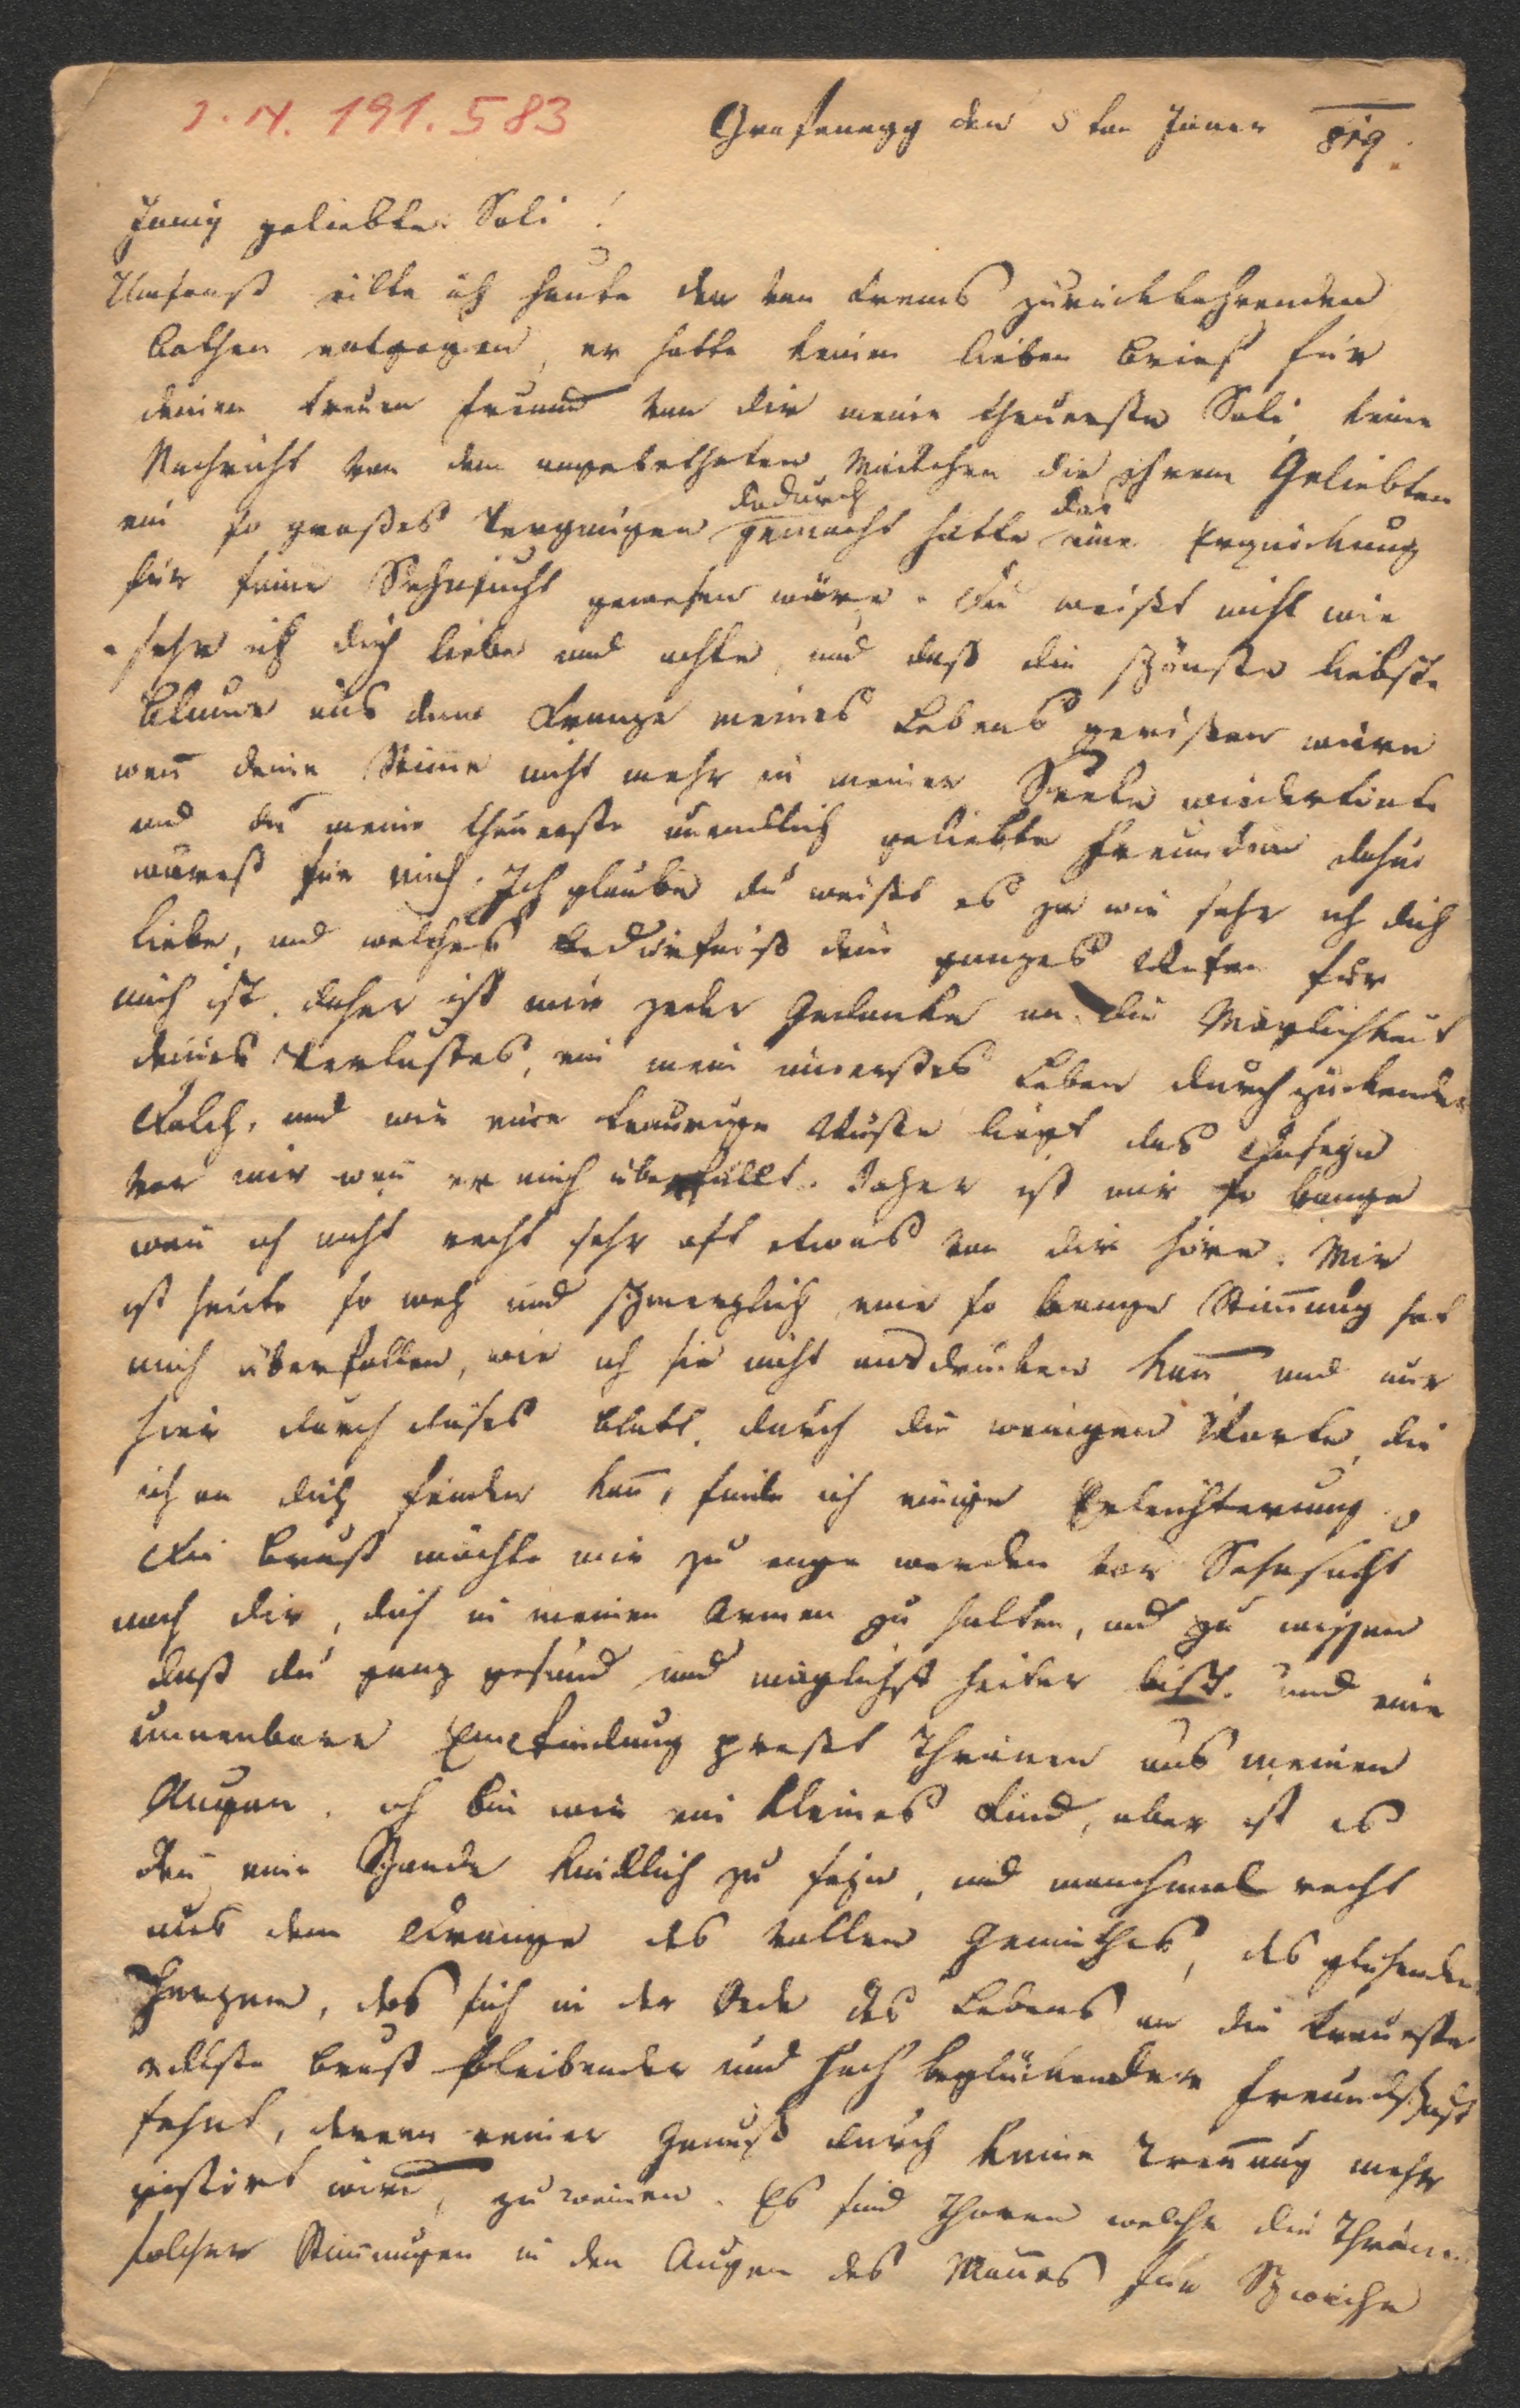 I. N. 191.583
Grafenegg den 5ten Jäner 819.
Innig geliebte Sali!
Umsonst eilte ich heute den von Krems zurückkehrenden
Bothen entgegen, er hatte keinen lieben Brief für
deinen treuen Freund von dir meine theuerste Sali, keine
Nachricht von dem angebetheten Mädchen die ihrem Geliebten
dadurch das
ein so großes Vergnügen gemacht hatte eine Erquickung
für seine Sehnsucht gewesen wäre. Du weißt nicht wie
sehr ich dich liebe und achte, und daß die schönste liebste
Blume aus dem Kranze meines Lebens gerißen wäre
wen̄ deine Stim̄e nicht mehr in meiner Seele wiedertönte
und du meine theuerste unendlich geliebte Freundin dahin
wärest für mich. Ich glaube du weißt es ja wie sehr ich dich
liebe, und welches Bedürfniß dein ganzes Wesen für
mich ist. daher ist mir jeder Gedanke an die Möglichkeit
deines Verlustes, ein mein innerstes Leben durchzückender
Dolch, und wie eine traurige Wüste liegt das Daseyn
vor mir wen̄ er mich überfällt. Daher ist mir so bange
wen̄ ich nicht recht sehr oft etwas von dir höre. Mir
ist heute so weh und schmerzlich eine so bange Stim̄ung hat
mich überfallen, wie ich sie nicht ausdrücken kan̄ und nur
hier durch dieses Blatt, durch die wenigen Worte, die
ich an dich senden kan̄, finde ich einige Erleichterung.
Die Brust möchte mir zu enge werden vor Sehnsucht
nach dir, dich in meinen Armen zu halten, und zu wissen
daß du ganz gesund und möglichst heiter bist. und eine
unnenbare Empfindung preßt Thränen aus meinen
Augen. ich bin wie ein kleines Kind, aber ist es
den̄ eine Schande kindlich zu seyn, und manchmal recht
aus dem Drange des vollen Gemüthes, des glühenden
Herzens, das sich in der Oede des Lebens an die treueste
edelste Brust bleibender und hoch beglückender Freundschaft
sehnt, deren reiner Genuß durch keine Tren̄ung mehr
gestört wird, zu weinen. Es sind Thoren welche die Thränen
solcher Stim̄ungen in den Augen des Man̄es für Schwäche